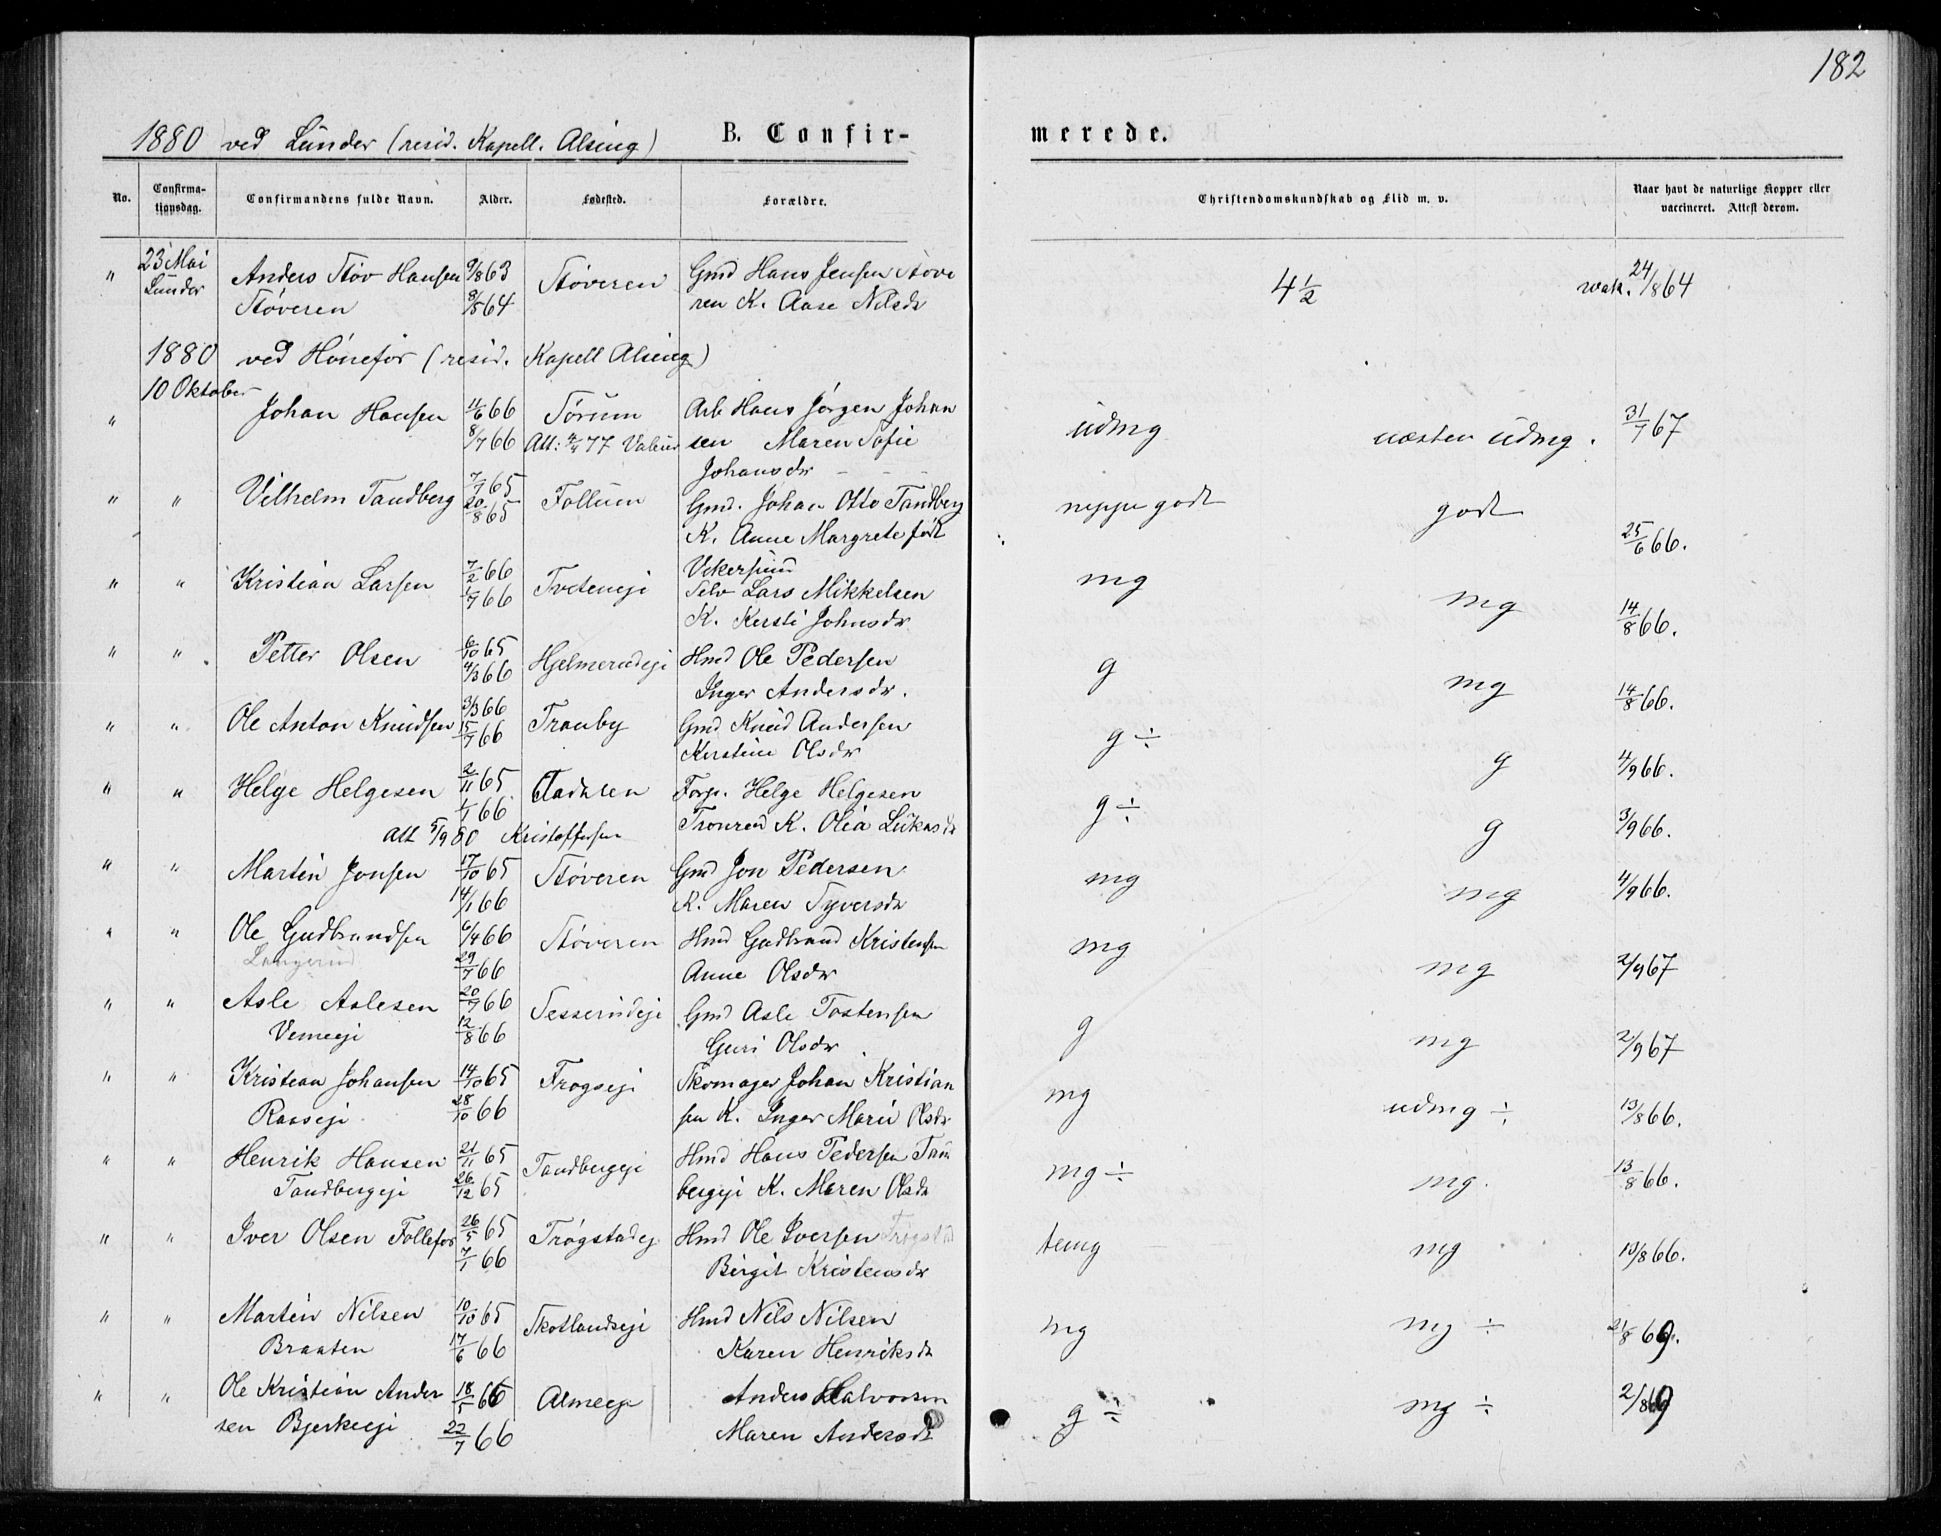 182
1880 ved Lunder (resid. Kapell. Alsing)
B. Confirmerede.
No. Confirmationsdag. Confirmandens fulde Navn. Alder. Fødested. Forældre. Christendomskundskab og Flid m. v. Naar havt de naturlige Kopper eller vaccineret. Attest derom.
" 23 Mai Anders Støv Hansen 9/8 63 Støveren Gmd Hans Jensen Støve 4 1/2 vak. 24/8 64
Lunder Støveren 9/8 64 ren K. Aase Nilsdr
1880 ved Hönefos (resid. Kapell Alsing)
10 Oktober
" Johan Hansen 11/6 66 Sörum Arb Hans Jörgen Johan udmg næsten udmg. 31/7 67
8/7 66 Att: 4/4 77 sen Maren Sofie
Johansdr - - -
" " Vilhelm Tandberg 7/7 65 Follum Gmd. Johan Otto Tandberg neppe godt godt 25/6 66.
20/8 65 K. Anne Margrete født
Vikersund
" " Kristian Larsen 7/2 66 Tveteneje Selv Lars Mikkelsen mg mg 14/8 66.
1/7 66 K. Kersti Johnsdr
" " Petter Olsen 6/10 65 Hjelmerudeje Hmd Ole Pedersen g mg 14/8 66.
4/3 66 Inger Andersdr.
" " Ole Anton Knudsen 3/3 66 Tranby Gmd Knud Andersen g ÷ g 4/9 66.
15/7 66 Kerstine Olsdr
" " Helge Helgesen 2/11 65 Forp. Helge Helgesen g ÷ g 3/9 66.
1/1 66 Tronrud K. Olia Lukasdr
Att 5/9 80 Kristoffersen
" " Martin Jonsen 17/10 65 Støveren Gmd Jon Pedersen mg mg 4/9 66.
14/1 66 K. Maren Syversdr
" " Ole Gudbrandsen 6/4 66 Støveren Hmd Gudbrand Kristensen mg mg 2/9 67
Langerud 29/7 66 Anne Olsdr
" " Asle Aslesen 20/7 66 Sesserudeje Gmd Asle Tostensen g mg 2/9 67
Vemeeje 12/8 66 Guri Olsdr
" " Kristian Johansen 14/10 65 Frogseje Skomager Johan Kristian mg udmg ÷ 13/8 66.
Raaseje 28/10 66 sen K. Inger Marie Olsdr
" " Henrik Hansen 21/11 65 Tandbergeje Hmd Hans Pedersen Tan mg ÷ mg. 13/8 66.
Tandbergeje 26/12 65 bergeje K. Maren Olsdr
" " Iver Olsen Follefos 26/5 65 Trøgstadej Hmd Ole Iversen Trøgstad temg mg 13/8 66.
7/1 66 Birgit Kristensdr
" " Martin Nilsen 10/10 65 Skotlandseje Hmd Nils Nilsen mg mg ÷ 21/8 69.
Braaten 17/6 66 Karen Henriksdr
" " Ole Kristian Ander 18/5 66 Almeeje Anders Halvorsen g ÷ mg ÷ 2/8 69
sen Bjerkeeje 22/7 66 Maren Andersdr